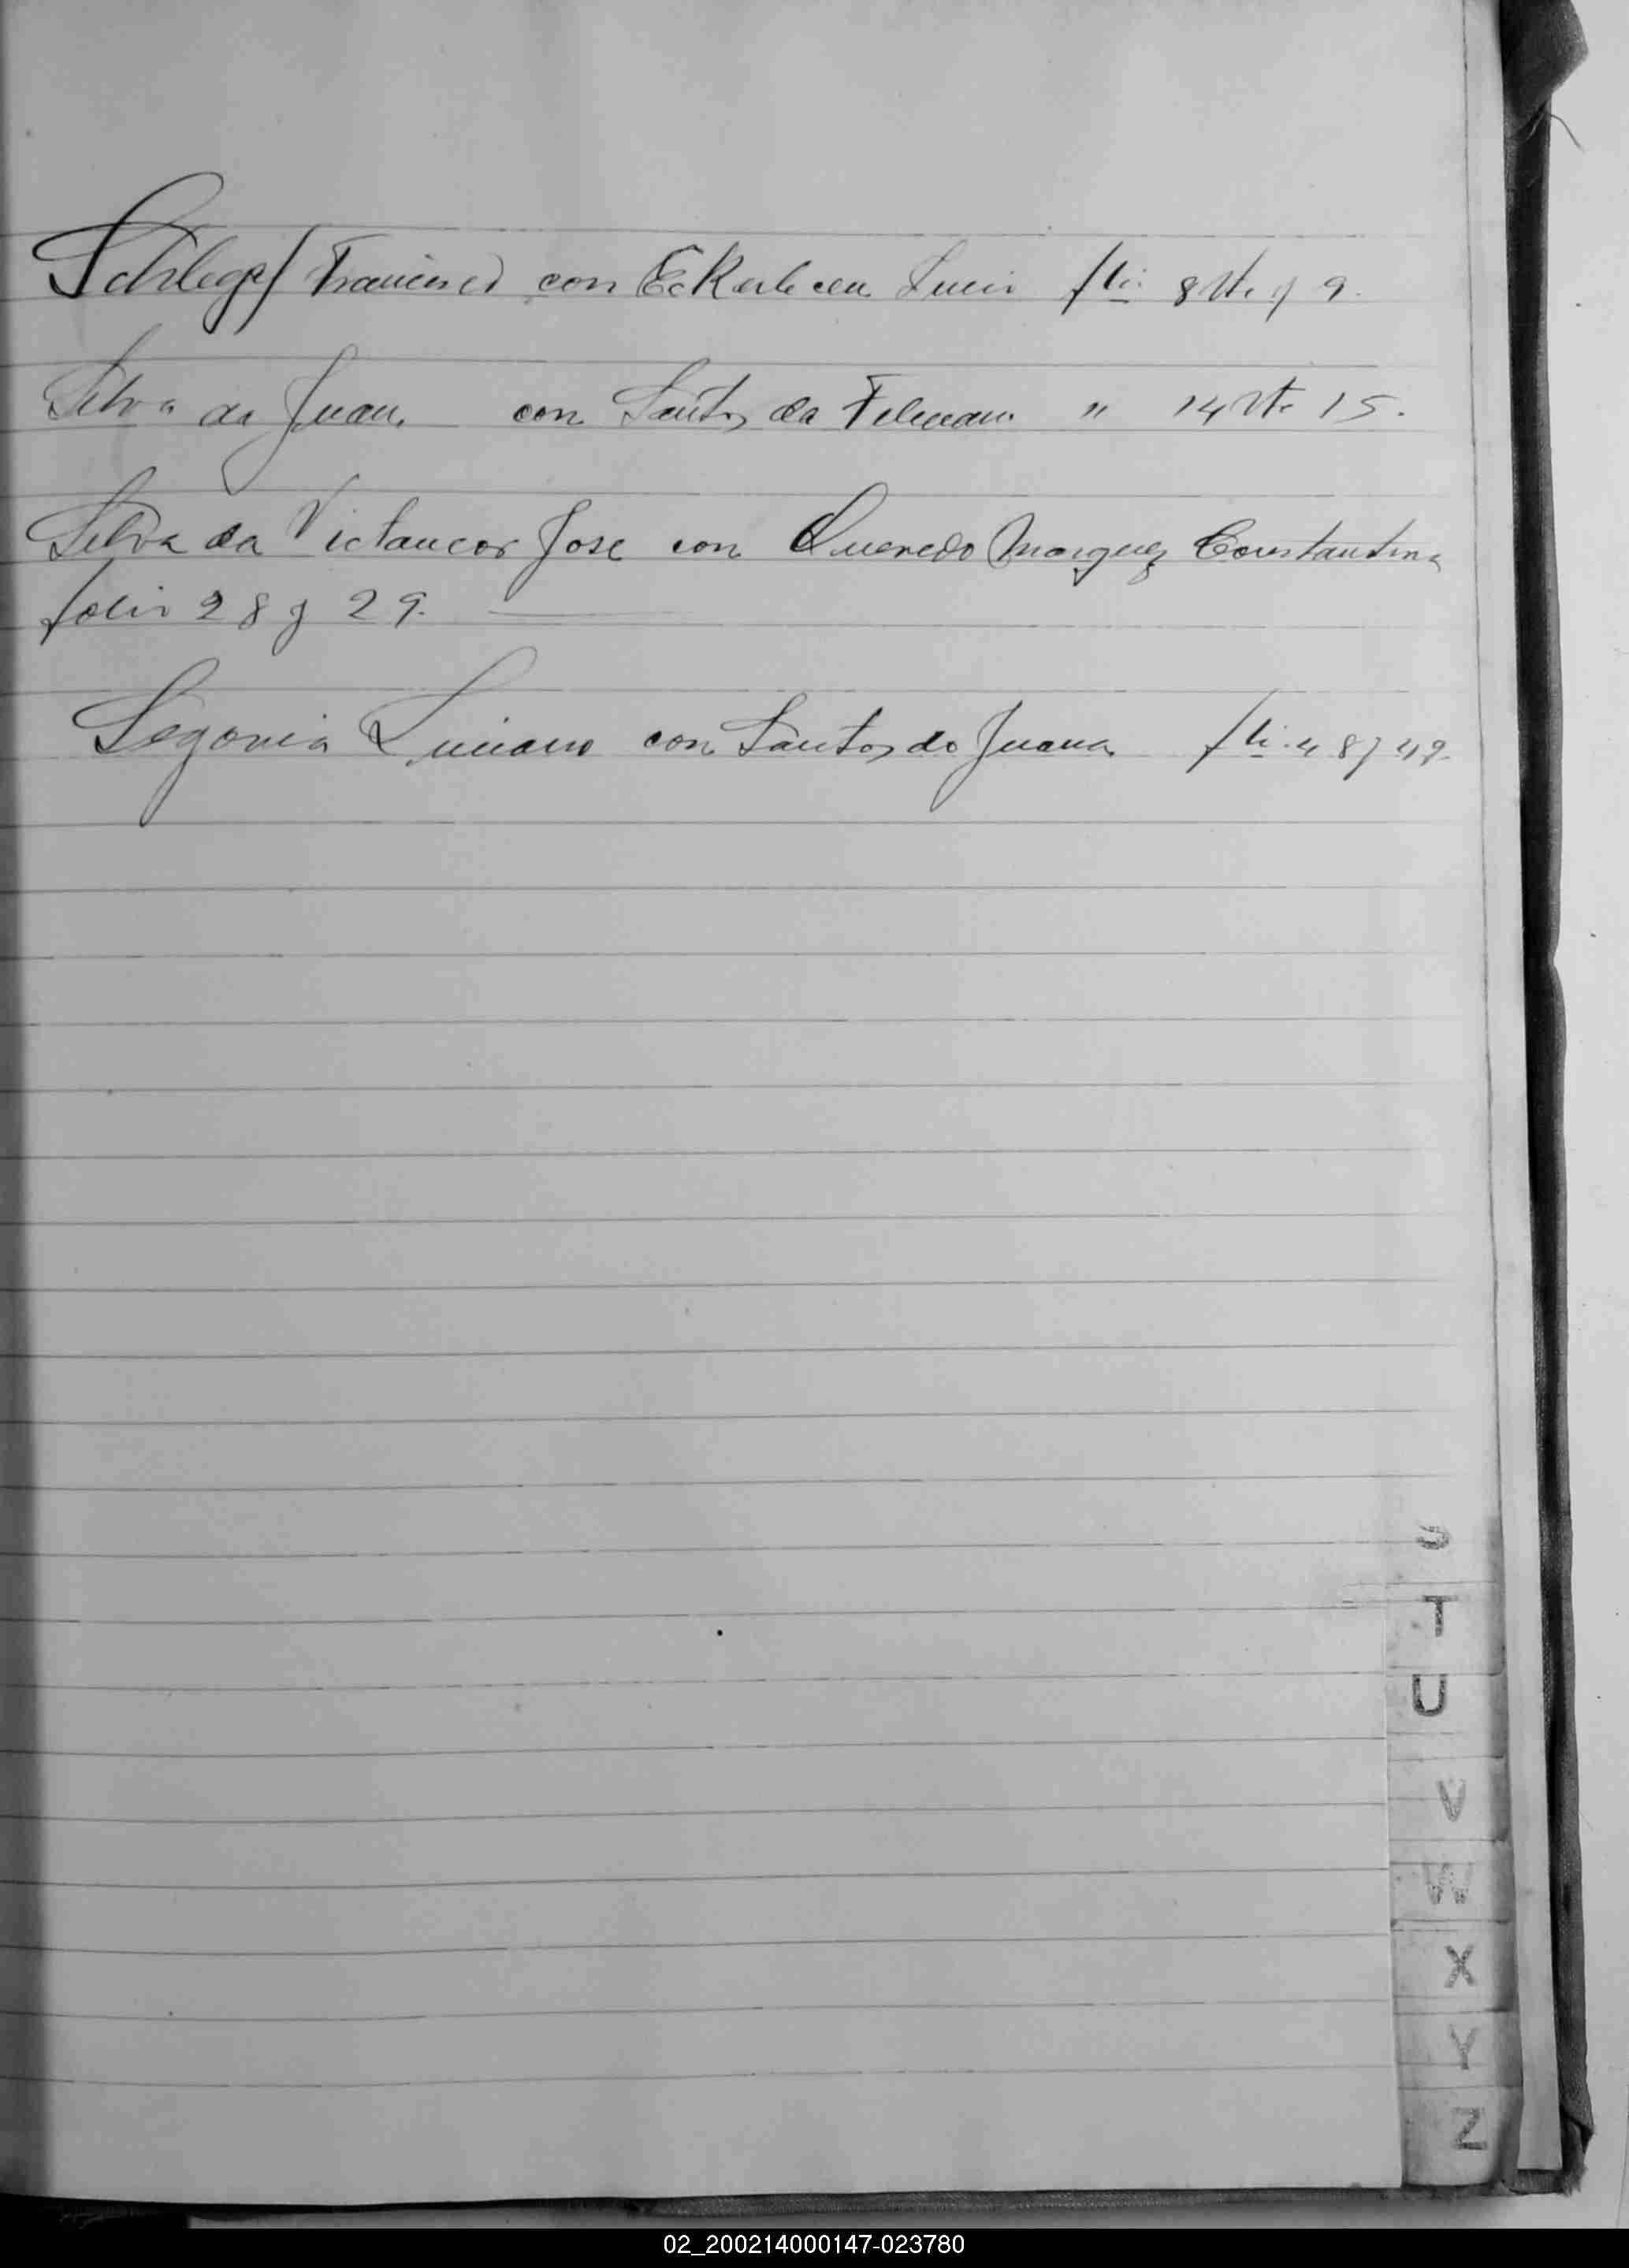 Schlegel Francisco con Lucia flio 8 Vto y 9.
Silva da Juan con Santos da " 14 Vto 15.
Silva da José con Quevedo Marquez Constantina
folio 28 y 29.
Segovia Luciano con Santos do Juana flio. 48 y 49.
S
T
U
V
W
X
Y
Z
02_200214000147-023780